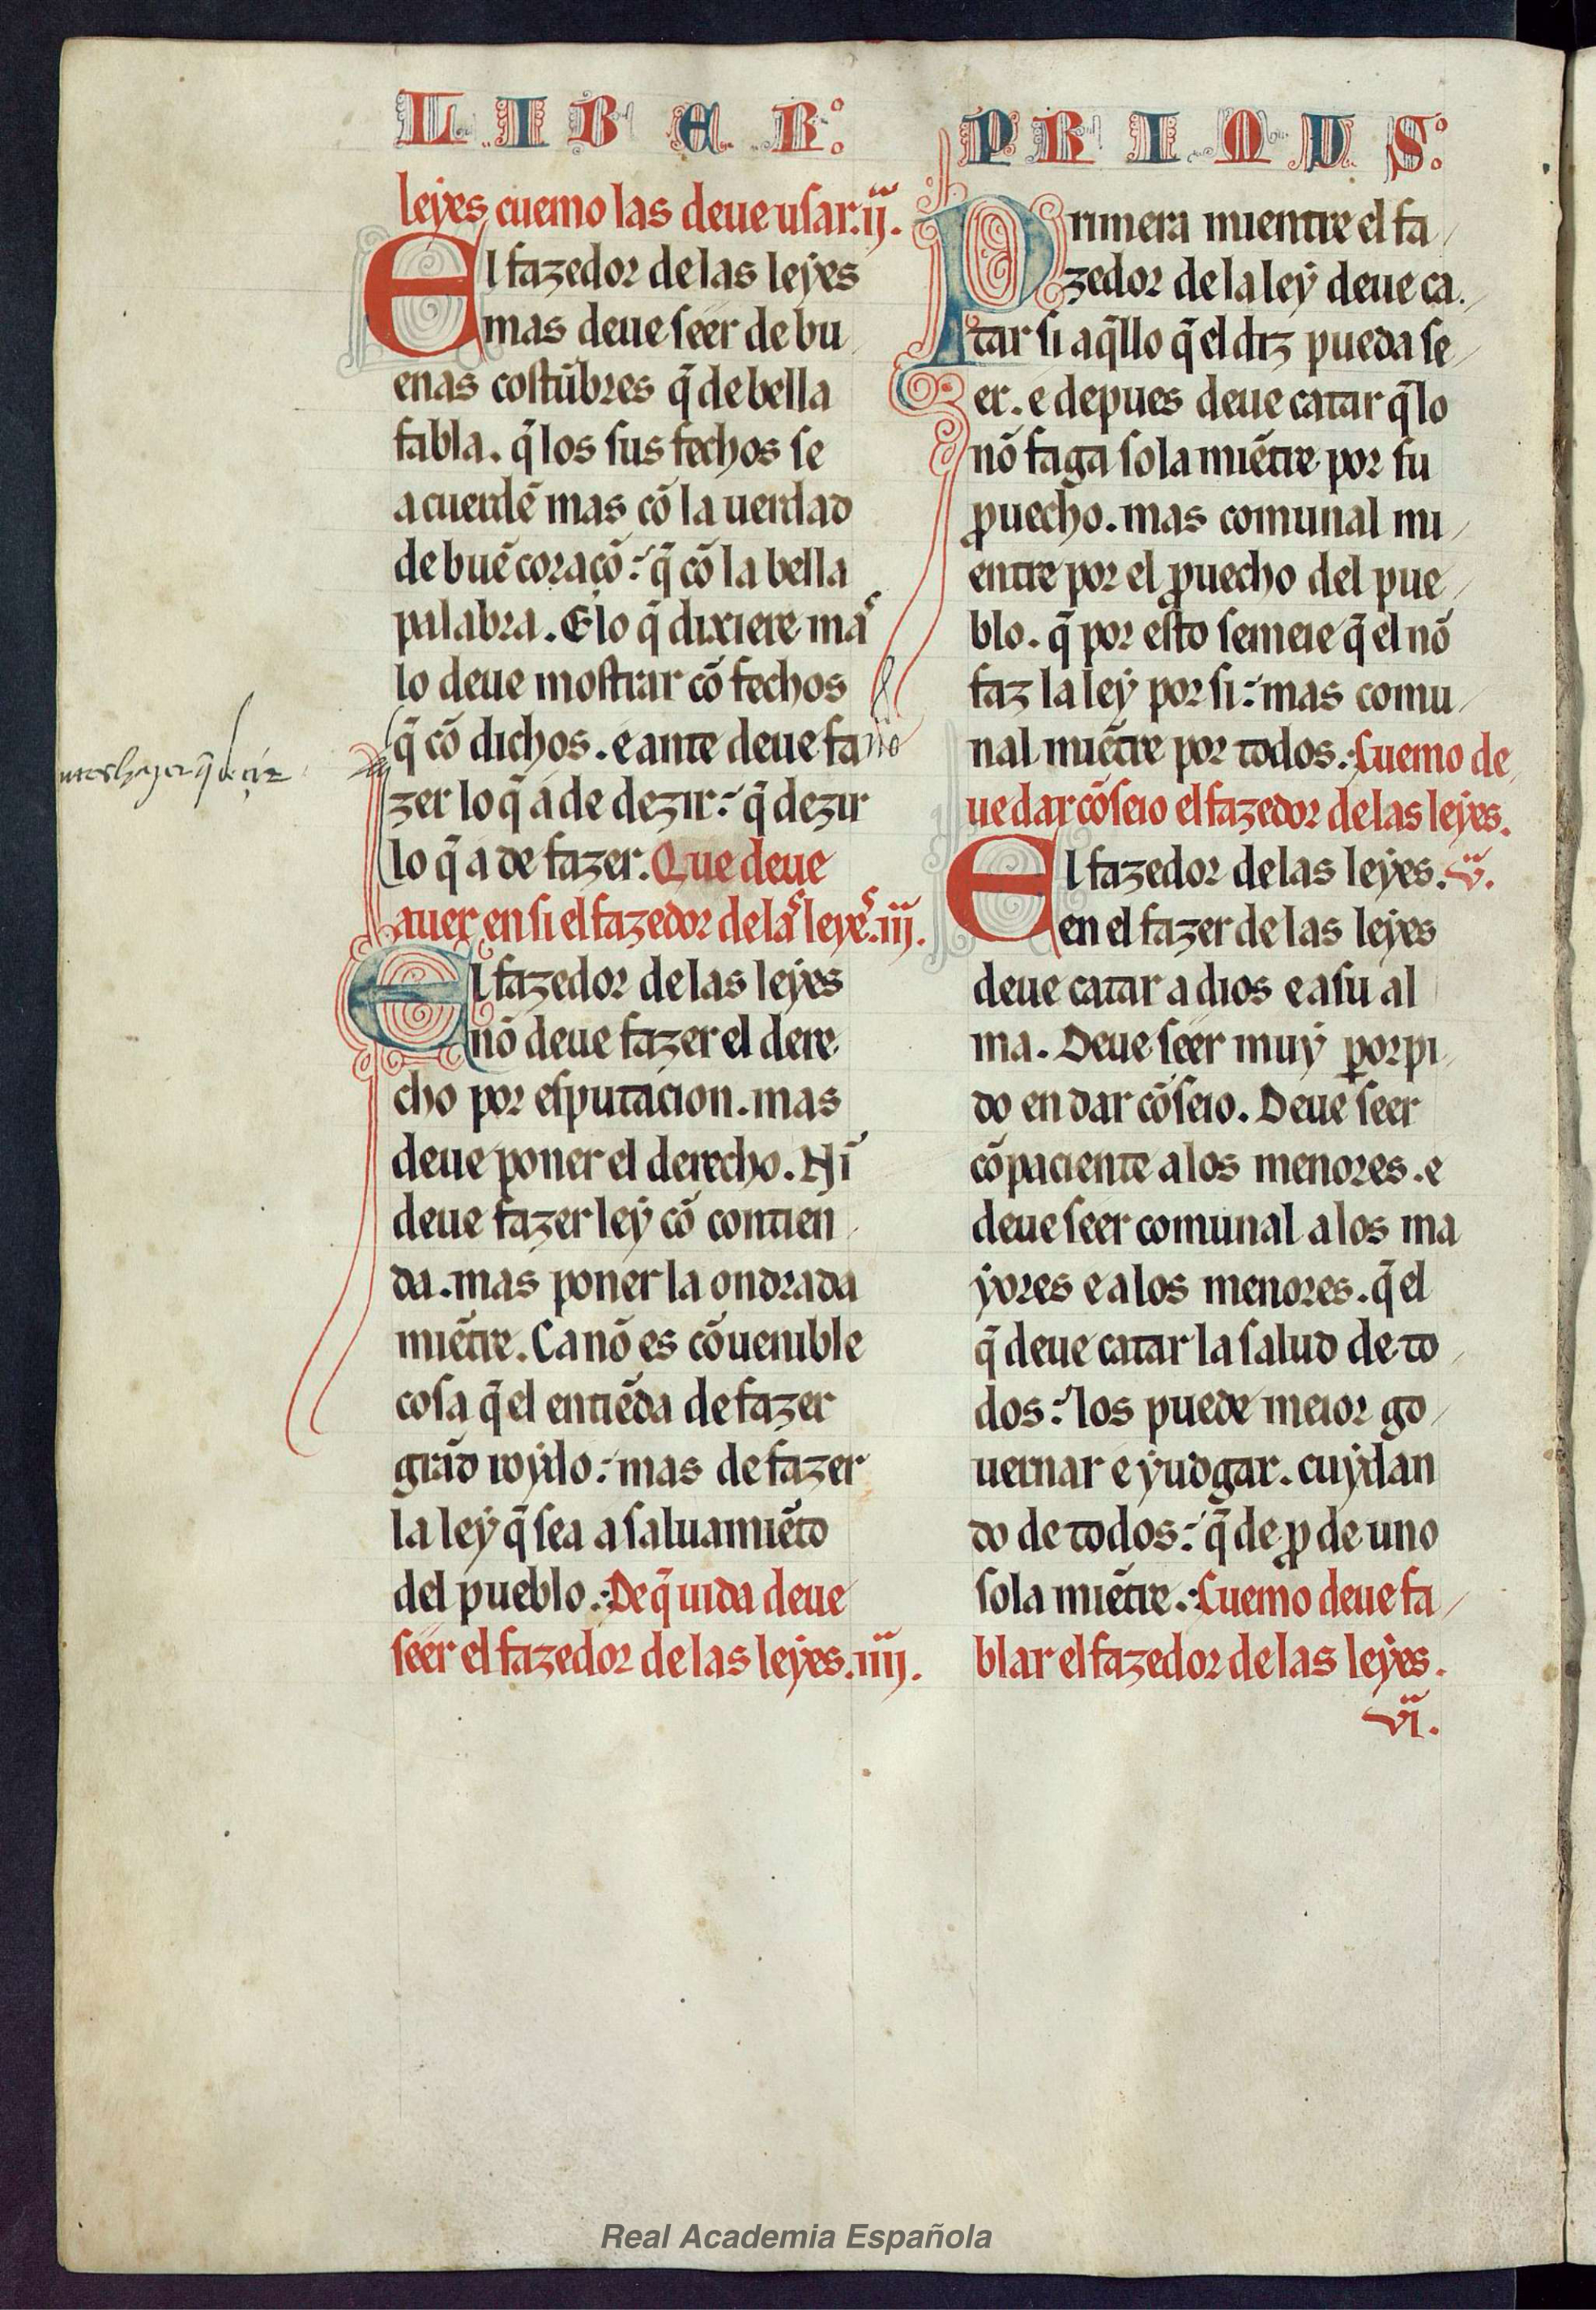 LIBER: PRIMUS:
leyes cuemo las deue usar.ij.
El fazedor de las leyes
mas deue seer de bu
enas costũbres q̃ de bella
fabla. q̃ los sus fechos se
acuerdẽ mas cõ la uerdad
de buẽ coraçõ: q̃ cõ la bella
palabra. E lo q̃ dixiere ma^s
lo deue mostrar cõ fechos
q̃ cõ dichos. e ante deue fa
zer lo q̃ a de dezir: q̃ dezir
lo q̃ a de fazer. Que deue
auer en si el fazedor de la^s leye^s.iij.
El fazedor de las leyes
nõ deue fazer el dere
cho por esputacion. mas
deue poner el derecho. Nĩ
deue fazer ley cõ contien
da. mas poner la ondrada
miẽtre. Ca nõ es cõuenible
cosa q̃ el entiẽda de fazer
grãd roydo: mas de fazer
la ley q̃ sea a saluamiẽto
del pueblo.: De q̃ uida deue
seer el fazedor de las leyes.iiij.
Primera mientre el fa
zedor de la ley deue ca
tar si aq̃llo q̃ el diz pueda se
er. e depues deue catar q̃ lo
nõ faga sola miẽtre por su
ꝓuecho. mas comunal mi
entre por el ꝓuecho del pue
blo. q̃ por esto semeie q̃ el nõ
faz la ley por si: mas comu
nal miẽtre por todos.: Cuemo de
ue dar cõseio el fazedor de las leyes.
El fazedor de las leyes. v.
en el fazer de las leyes
deue catar a dios e a su al
ma. Deue seer muy ꝑorpi
do en dar cõseio. Deue seer
cõpaciente a los menores. e
deue seer comunal a los ma
yores e a los menores. q̃ el
q̃ deue catar la salud de to
dos: los puede meior go
uernar e yudgar. cuydan
do de todos: q̃ de ꝓ de uno
sola miẽtre.: Cuemo deue fa
blar el fazedor de las leyes.
vi.
Real Academia Española